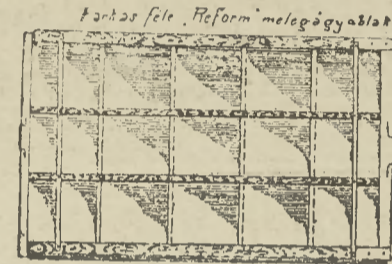 Farkas féle „Reform” melegágyablak